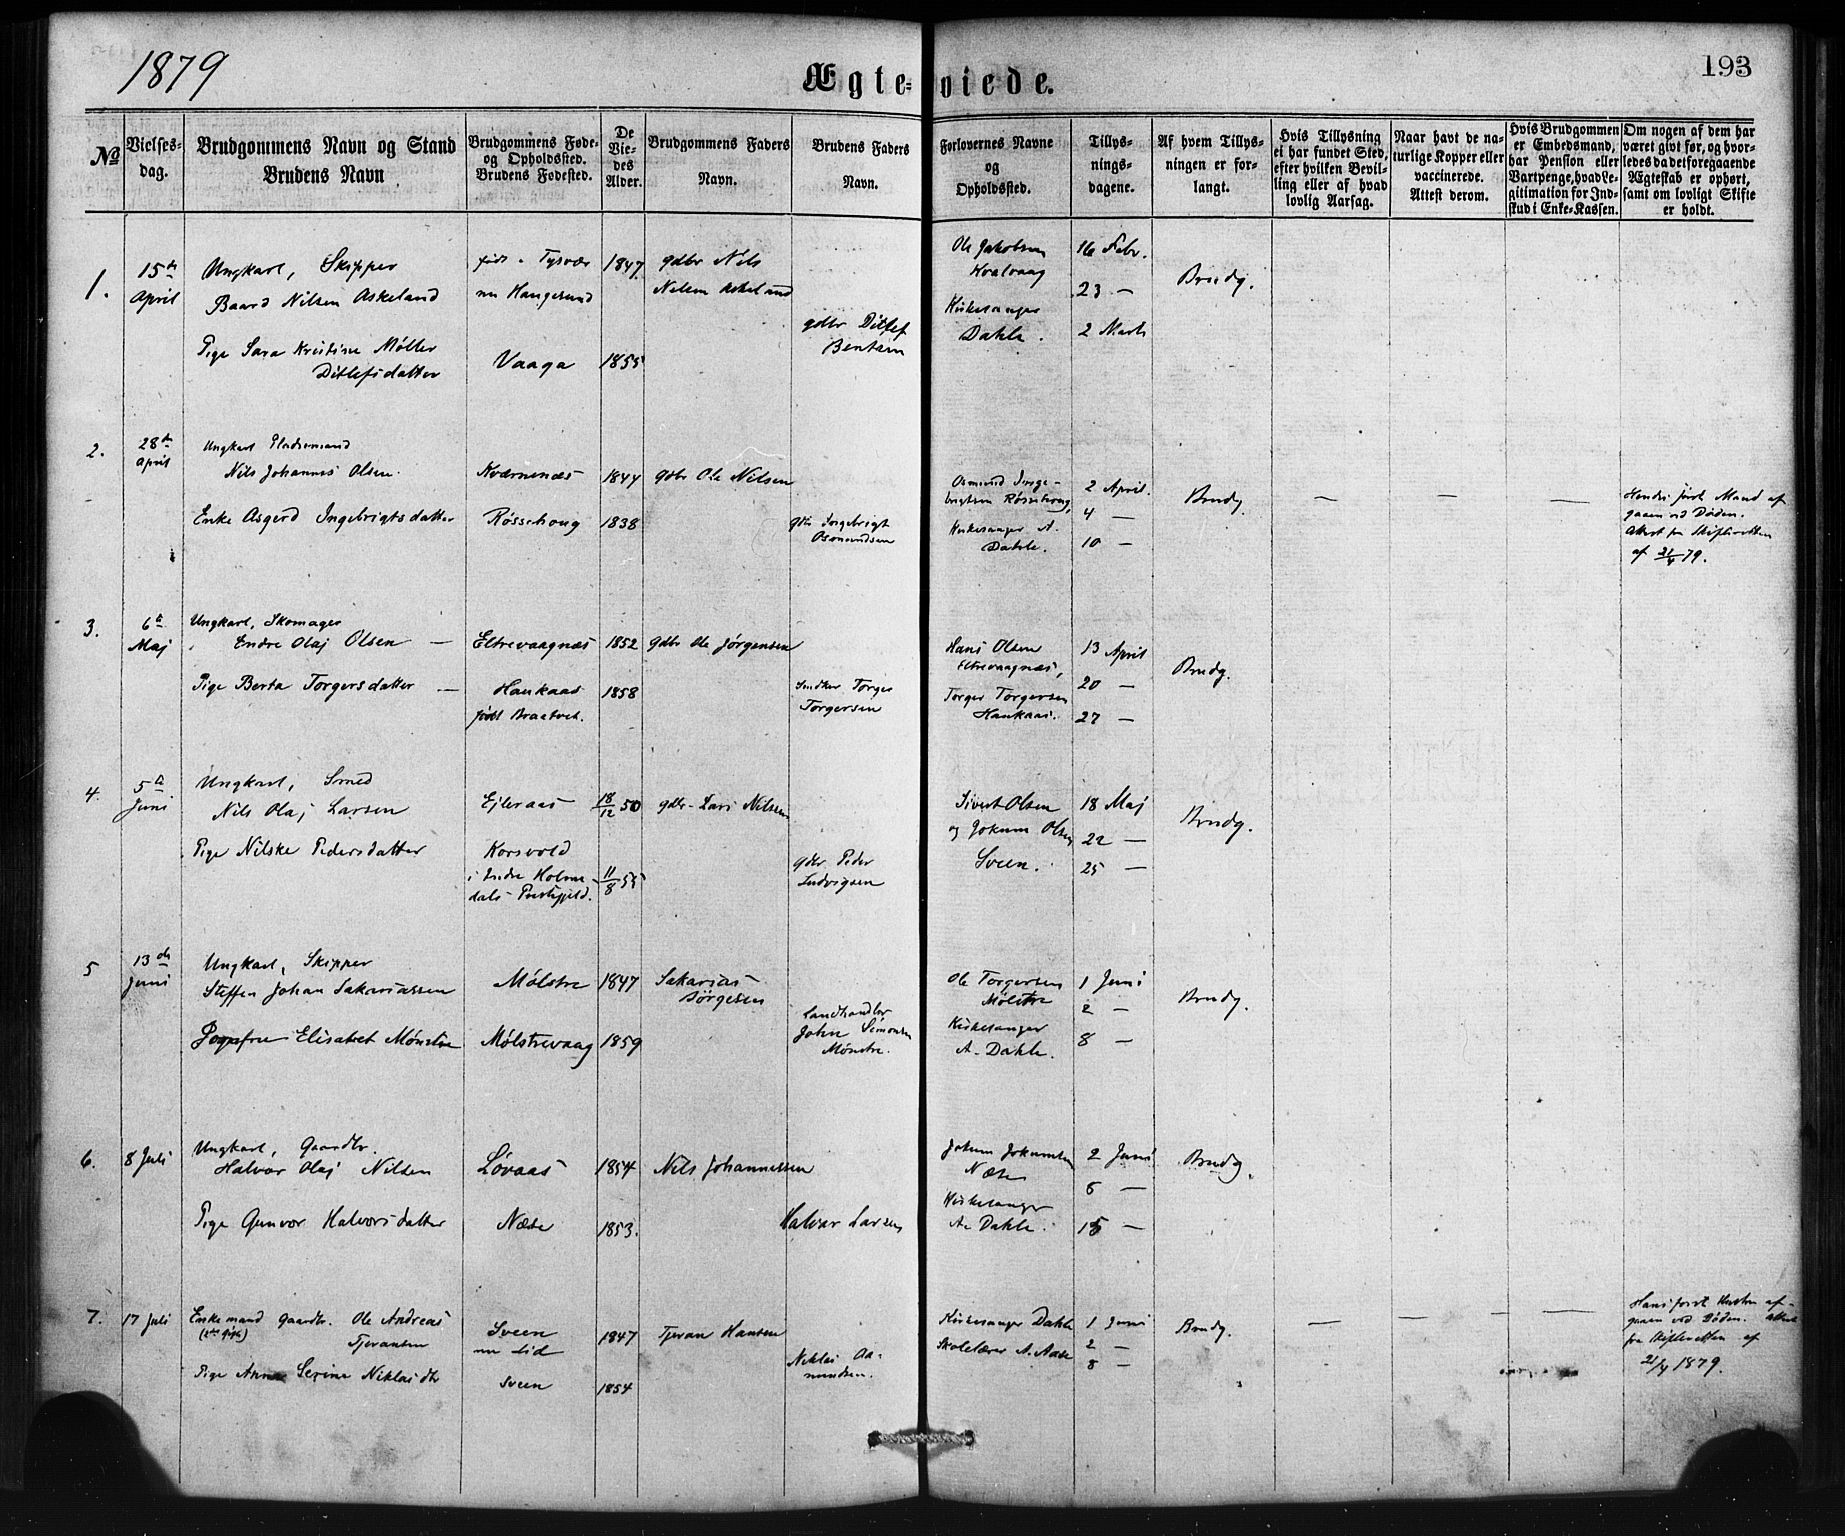 1879
193
Ægte-viede.
No
Vielses-dag.
Brudgommens Navn og Stand
Brudens Navn
Brudgommens Føde- og Opholdssted.
Brudens Fødested.
De Vie-des Alder.
Brudgommens Faders Navn.
Brudens Faders Navn.
Forlovernes Navne og Opholdssted.
Tillys-nings-dagene.
Af hvem Tillys-ningen er for-langt.
Hvis Tillysning ei har fundet Sted, efter hvilken Bevil-ling eller af hvad lovlig Aarsag.
Naar havt de na-turlige Kopper eller vaccinerede. Attest derom.
Hvis Brudgommen er Embedsmand, har Pension eller Vartpenge, hvad Le-gitimation for Ind-skud i Enke-Kassen.
Om nogen af dem har været givt før, og hvor-ledes da det foregaaende Ægteskab er ophørt, samt om lovligt Skifte er holdt.
1. 15de April
Ungkarl, Skipper
Baard Nilsen Askeland
født Tysvær
nu Haugesund
1847
gdbr Nils
Nilsen Askeland
Pige Sara Kristine Møller
Ditlefsdatter
Vaaga 1855
gdbr Ditlef
Bentsen
Ole Jakobsen
Kvalvaag
Kirkesanger
Dahle.
16 Febr.
23 —
2 Marts
Brudg.
2. 28de April
Ungkarl Pladsemand
Nils Johannes Olsen.
Kværnenæs 1844 gdbr Ole Nilsen
Enke Asgerd Ingebrigtsdatter Røssehoug 1838
gdbr Ingebrigt
Osmundsen
Osmund Inge-
brigtsen Røssehoug,
Kirkesanger A.
Dahle.
2 April.
4 —
10 —
Brudg — — —
Hendes først Mand af
gaaen ved Døden.
Attest fra Skifteretten
af 21/4 79.
3. 6te Maj
Ungkarl, Skomager
Endre Olaj Olsen —
Eltrevaagnæs 1852 gdbr Ole Jørgensen
Pige Berta Torgersdatter —
Haukaas 1858
født Braatvet.
Torger
Torgersen
Hans Olsen
Eltrevaagnæs,
Torger Torgersen
Haukaas.
13 April
20 —
27 —
Brudg.
4. 5te Juni
Ungkarl, Smed
Nils Olaj Larsen
Ejleraas 18/12 50 gdbr Lars Nilsen
Pige Nilske Pedersdatter
Korsvold
i Indre Holme-
dals Præstegjeld.
11/8 55
gdbr Peder
Ludvigsen
Sivert Olsen
og Jokum Olsen
Sveen.
18 Maj
22 —
25 —
Brudg.
5 13de Juni
Ungkarl, Skipper
Steffen Johan Sakariassen
Mølstre 1847 Sakarias
Sørgesen
Jomfru Elisabet Mønstre Mølstrevaag 1859
Landhandler
John Simonsen
Mønstre.
Ole Torgersen
Mølstre
Kirkesanger
A. Dahle.
1 Juni
2 —
8 —
Brudg.
6. 8 Juli
Ungkarl, Gaardbr.
Halvor Olaj Nilsen
Løvaas 1854 Nils Johannessen
Pige Gunvor Halvorsdatter Næse 1853.
Halvor Larsen
Jokum Jokumsen
Næse
Kirkesanger
A. Dahle.
2 Juni
8 —
15 —
Brudg.
7. 17 Juli
Enkemand Gaardbr. Ole Andreas
(2den Gift) Tjeransen
Sveen
nu Lid
1847 Tjeran Hansen
Pige Anna Serine Niklasdtr
Sveen 1854
Niklas Aa-
mundsen.
Kirkesanger Dahle
Skolelærer A. Aase
1 Juni
2 —
8 —
Brudg. — — — —
Hans først Hustru af-
gaaen ved Døden. Attest
fra Skifteretten af
21/4 1879.